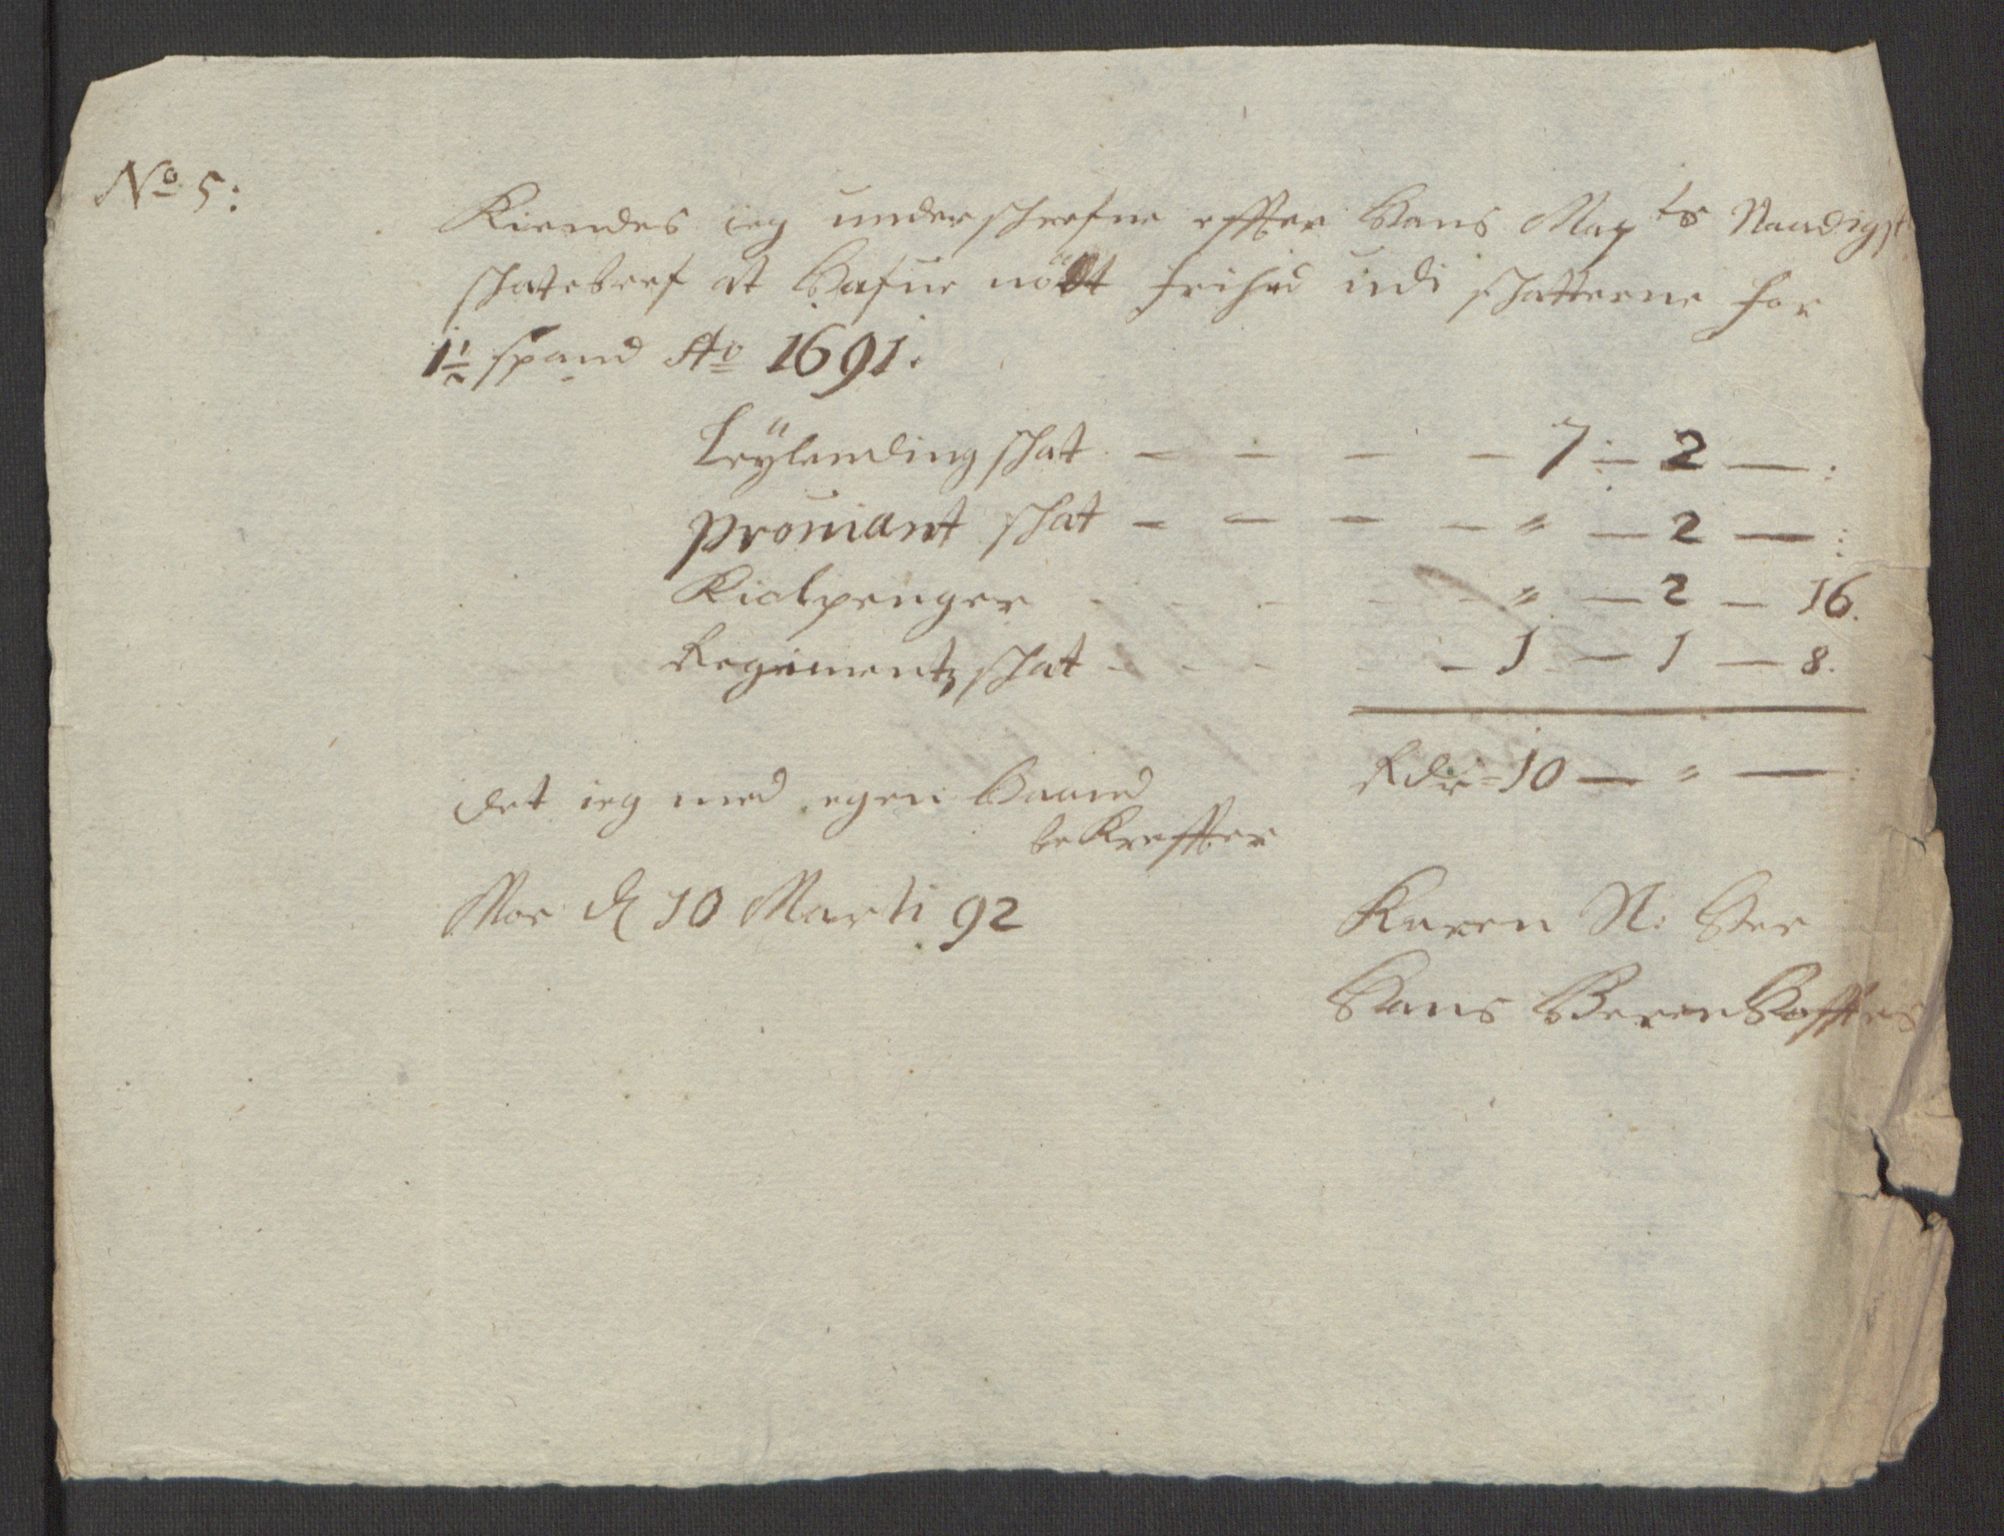 No 5:
Kiendes ieg underschrefne effter Hans Mayts Naadigst
schatebref at Hafue nödt frihed udi schatterne for
1½ spand Ao 1691.
Leÿlending schat — — — — 7 — 2 — :
prouiant schat — — — — " — 2 — :
Kiolpenger - - - - " — 2 — 16.
Regimentz schat - - - - 1 — 1 — 8.
Rdr = 10 — " — :
det ieg med egen Haand
bekreffter
Moe d 10 Marti 92
Karen N: Ser
Hans Berenhofftes